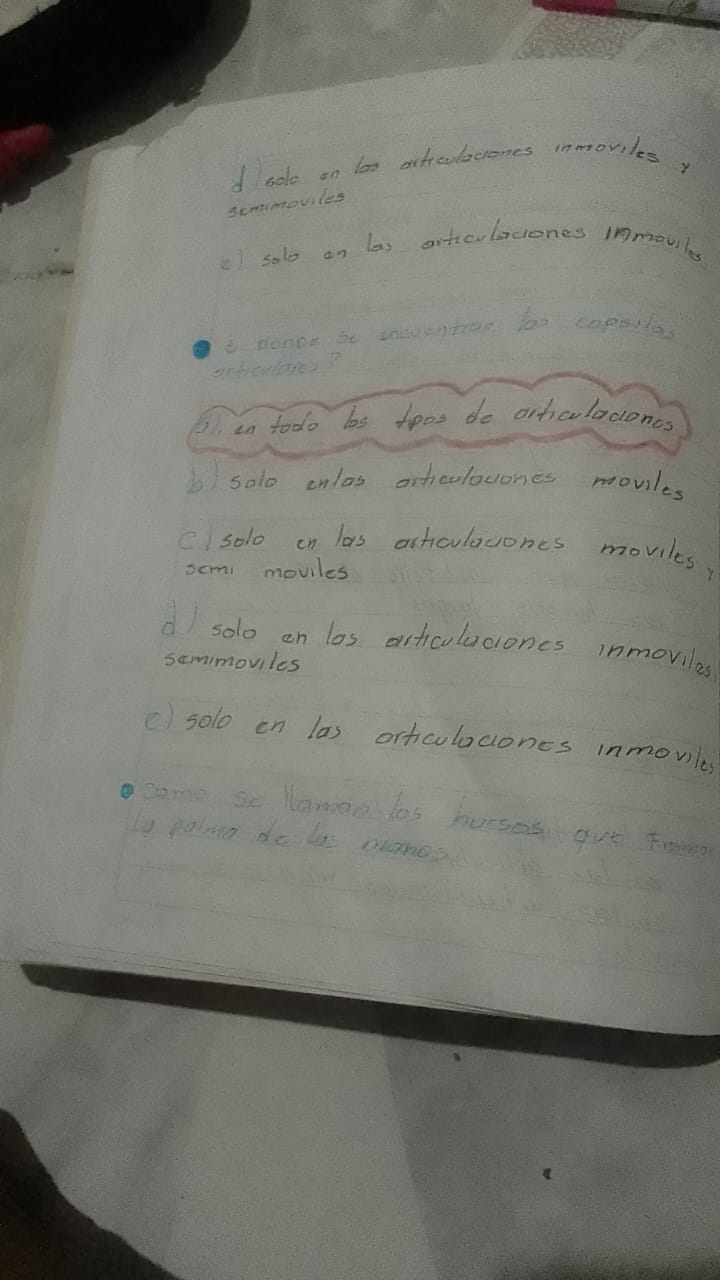 d) solo en las articulaciones inmoviles y
semimoviles
e) solo en las articulaciones inmoviles
¿ Donde se encuentran las capsulas
articulares?
a). en todo los tipos de articulaciones
b) solo en las articulaciones moviles
c) solo en las articulaciones moviles y
semi moviles
d) solo en las articulaciones inmoviles
semimoviles
e) solo en las articulaciones inmoviles
Como se llaman los huesos que forman
la palma de las manos